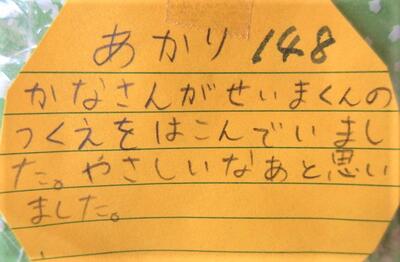 あかり 148
かなさんがせいまくんの
つくえをはこんでいまし
た。やさしいなあと思い
ました。